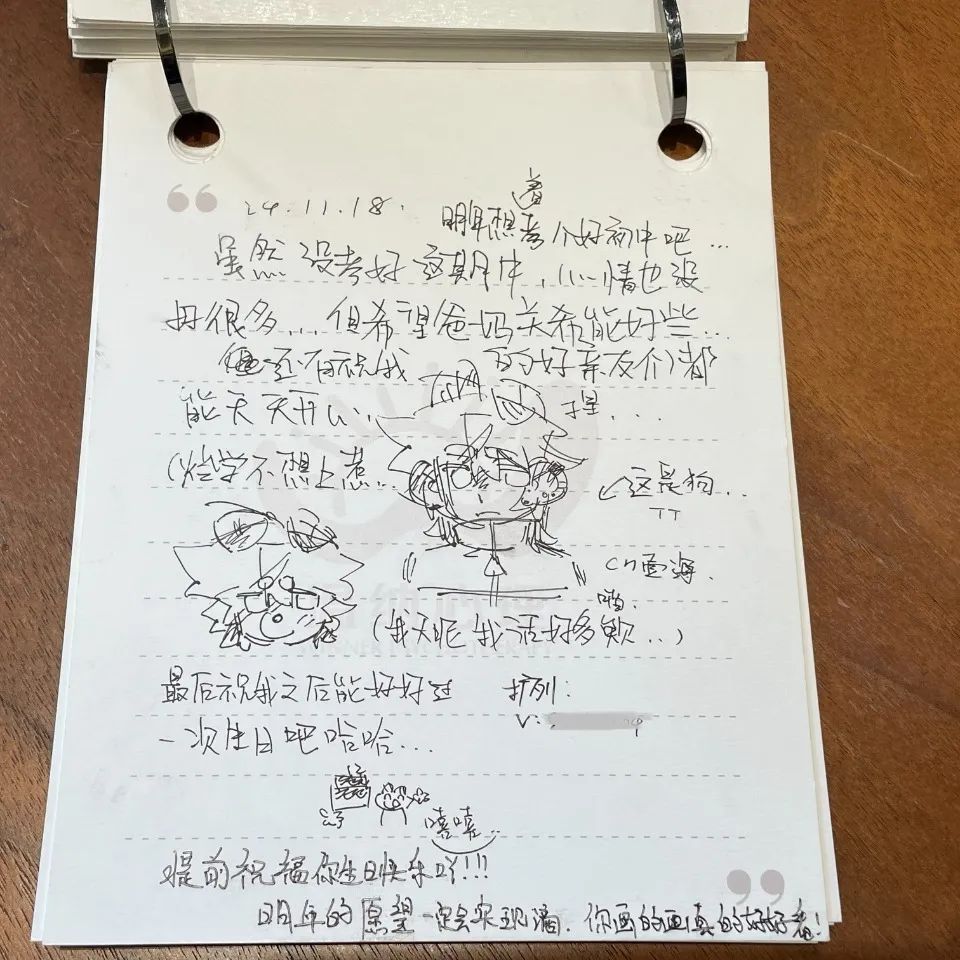 24.11.18.
着
明年想考个好初中吧...
虽然没考好这期中,心情也没
好很多...但希望爸妈关希能好些...
还有祝我 的好亲友们都
能天天开心...
(烂学不想上惹...
这是狗...
TT
cn
(我大呢我活好多欸...)
最后祝我之后能好好过 扩列:
一次生日吧哈哈... V:
嘻嘻...
提前祝福你生日快乐吖!!!
明年的愿望一定会实现滴.你画的画真的好好看!